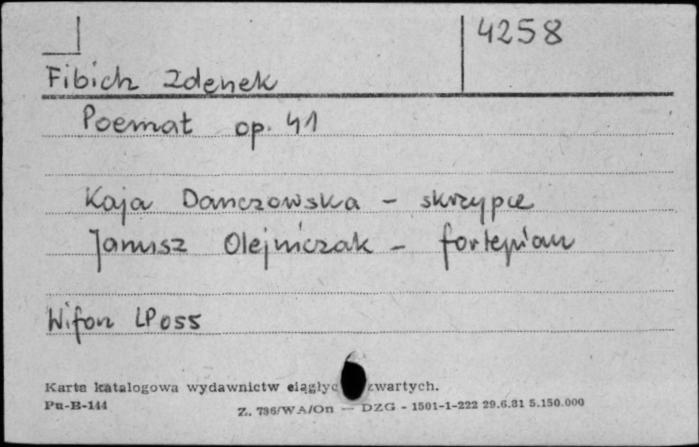 4258
Fibich Zdenek
Poemat op. 41
Kaja Danczowska - skrzypce
Janusz Olejniczak - fortepian
Wifon LP 055
Karta katalogowa wydawnictw ciągłyc zwartych.
Pu-B-144
Z. 736/WA/On — DZG - 1501-1-222 29.6.81 5.150.000